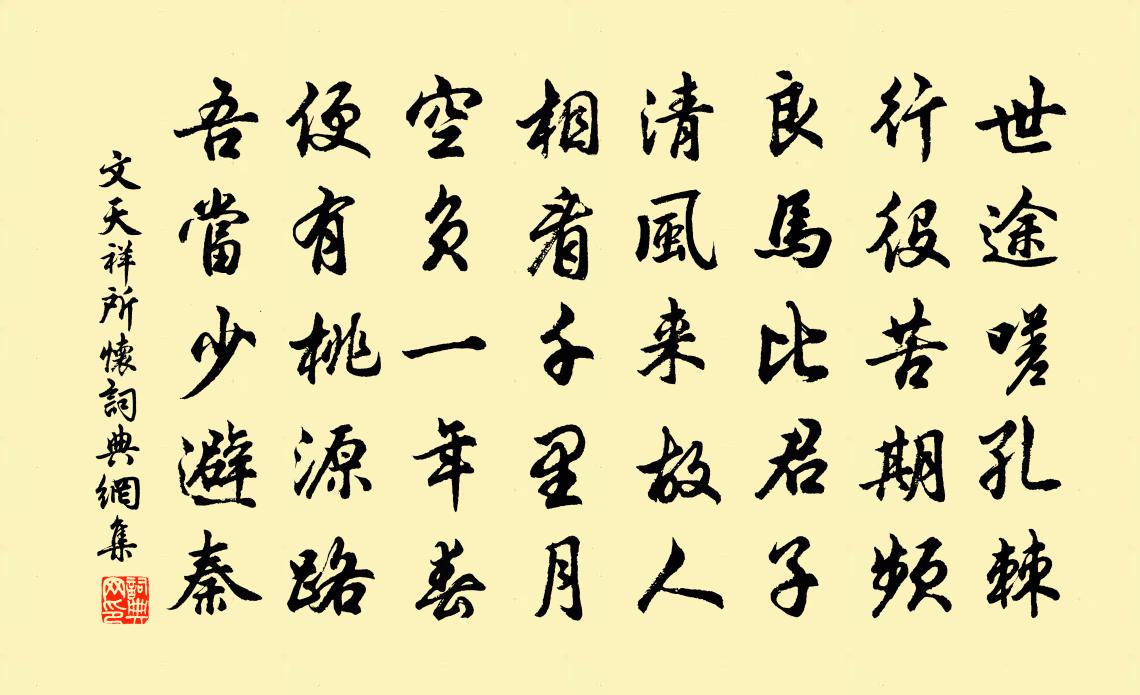 世途嗟孔棘
行役苦期頻
良馬比君子
清風来故人
相看千里月
空負一年春
便有桃源路
吾當少避秦
文天祥所懷詞典網集
詞典網印